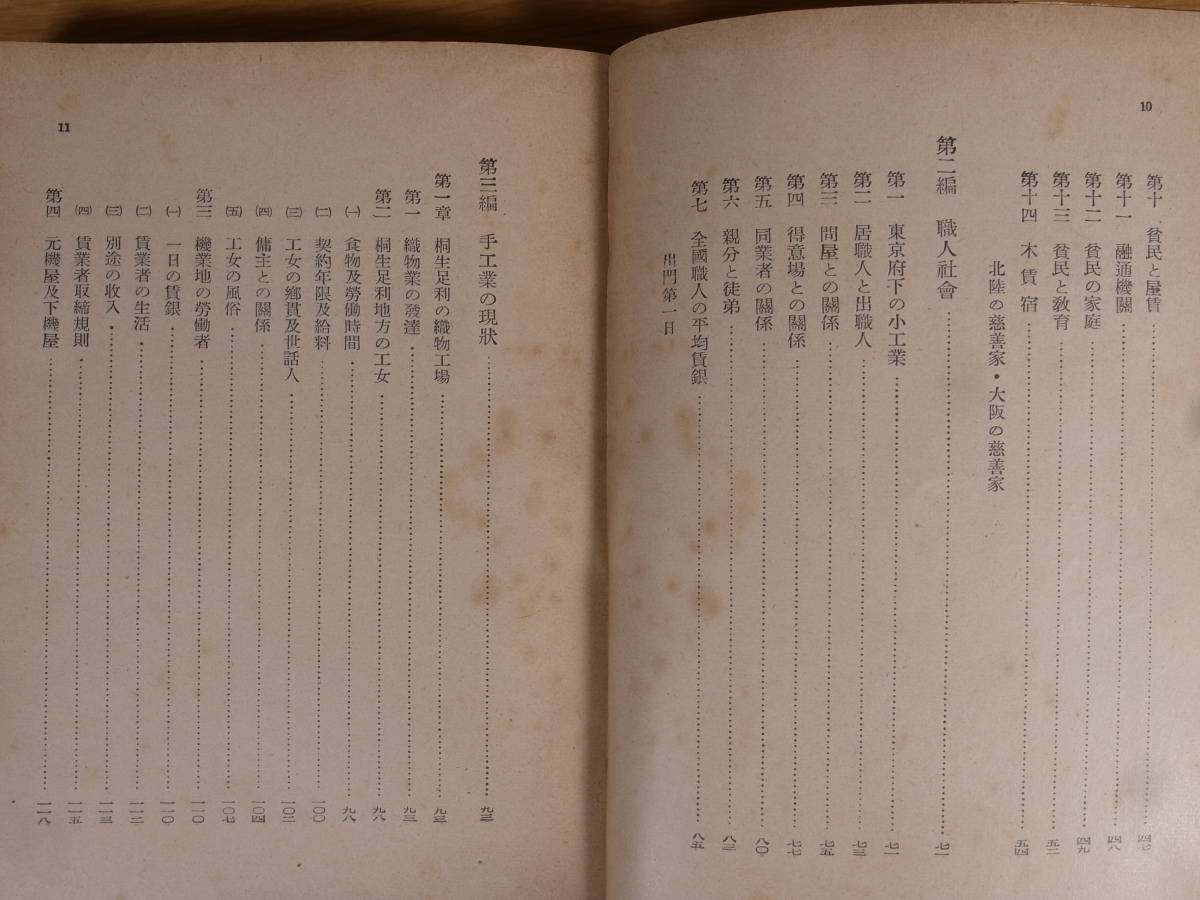 10
第十 貧民と屋賃……四七
第十一 融通機關……四八
第十二 貧民の家庭……四九
第十三 貧民と敎育……五二
第十四 木賃宿……五四
北陸の慈善家・大阪の慈善家
第二編 職人社會……七一
第一 東京府下の小工業……七一
第二 居職人と出職人……七三
第三 問屋との關係……七五
第四 得意場との關係……七七
第五 同業者の關係……八〇
第六 親分と徒弟……八三
第七 全國職人の平均賃銀……八五
出門第一日
11
第三編 手工業の現狀……九三
第一章 桐生足利の織物工場……九三
第一 織物業の發達……九三
第二 桐生足利地方の工女……九八
㈠ 食物及勞働時間……九八
㈡ 契約年限及給料……一〇〇
㈢ 工女の鄕貫及世話人……一〇二
㈣ 傭主との關係……一〇四
㈤ 工女の風俗……一〇七
第三 機業地の勞働者……一一〇
㈠ 一日の賃銀……一一〇
㈡ 賃業者の生活……一一二
㈢ 別途の收入……一一三
㈣ 賃業者取締規則……一一五
第四 元機屋及下機屋……一一八